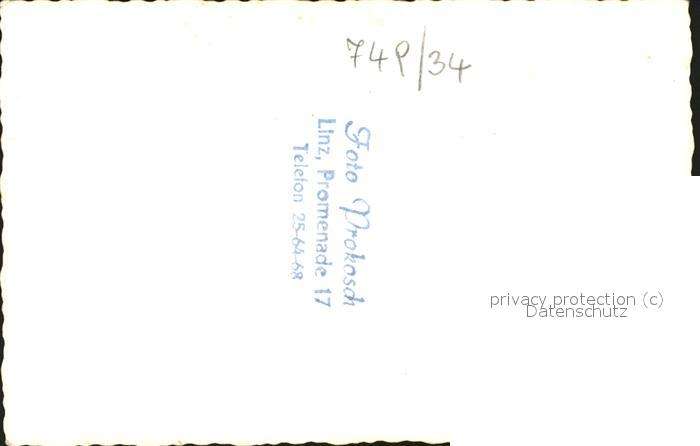 749/34
Foto Prokosch
Linz, Promenade 17
Telefon 25-64-68
privacy protection (c)
Datenschutz